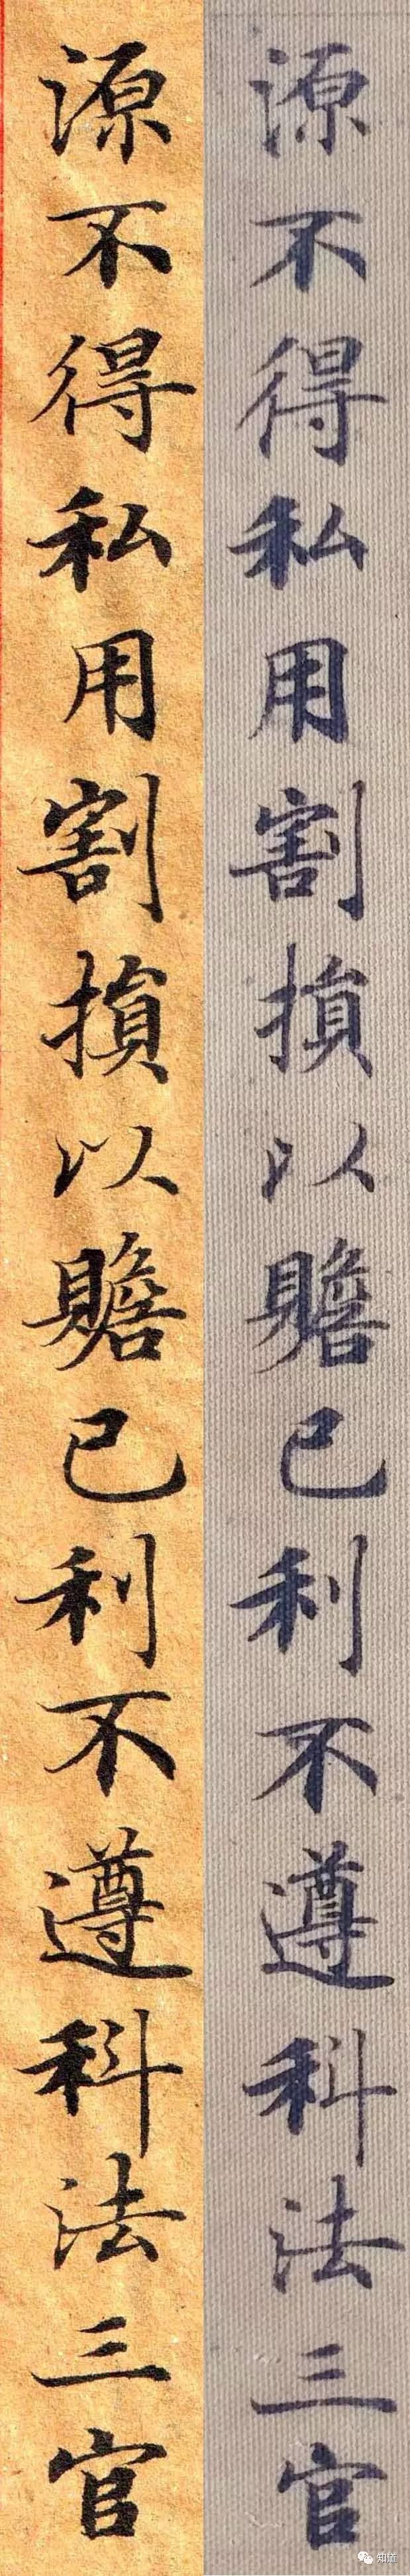 源不得私用割損以贍己利不遵科法三官
源不得私用割損以贍己利不遵科法三官
知道